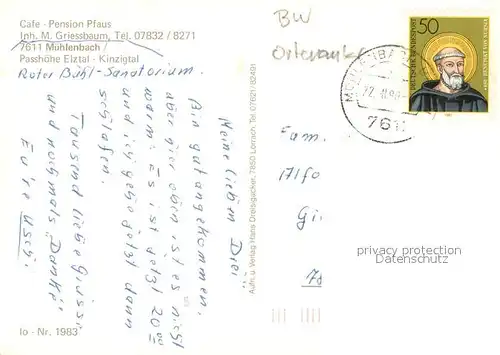 Cafe - Pension Pfaus
Inh. M. Griessbaum, Tel. 07832 / 8271
7611 Mühlenbach /
Passhöhe Elztal - Kinzigtal
Roter Bühl-Sanatorium.
Meine lieben Drei!
Bin gut angekommen,
aber hier oben ist es nicht
warm. Es ist jetzt 20 00
und ich gehe jetzt dann
schlafen.
Tausend liebe Grüsse
und nochmals "Danke"
Eure Uschi.
lo - Nr. 1983
Aufn. u. Verlag Hans Dreisigacker, 7850 Lörrach, Tel. 07621/82401
BW
Ortenaukr
50
DEUTSCHE BUNDESPOST
BENEDIKT VON NURSIA
7611
Fam.
privacy protection